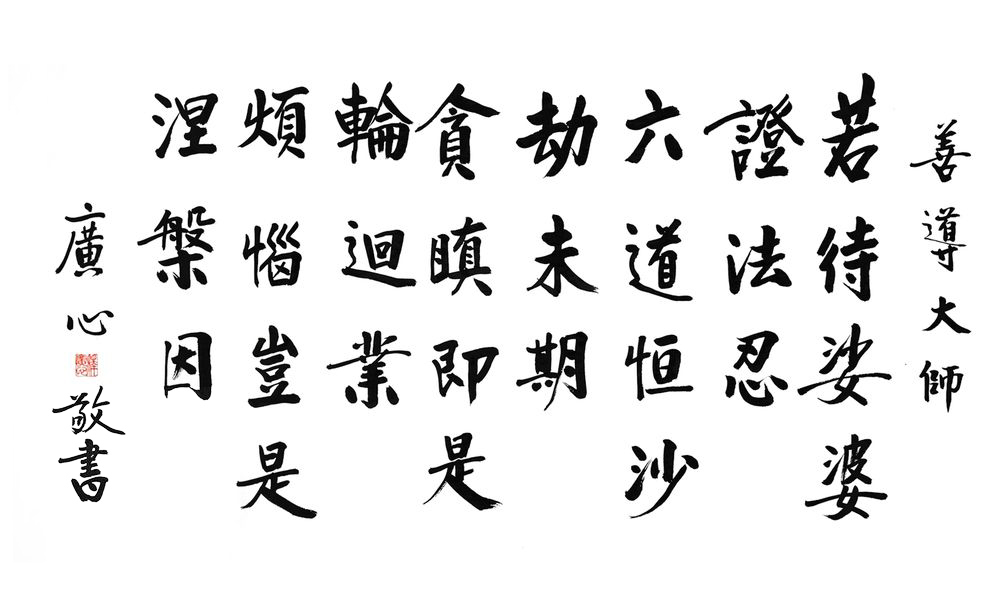 善導大師
若待娑婆
證法忍
六道恒沙
劫未期
貪瞋即是
輪迴業
煩惱豈是
涅槃因
廣心
敬書